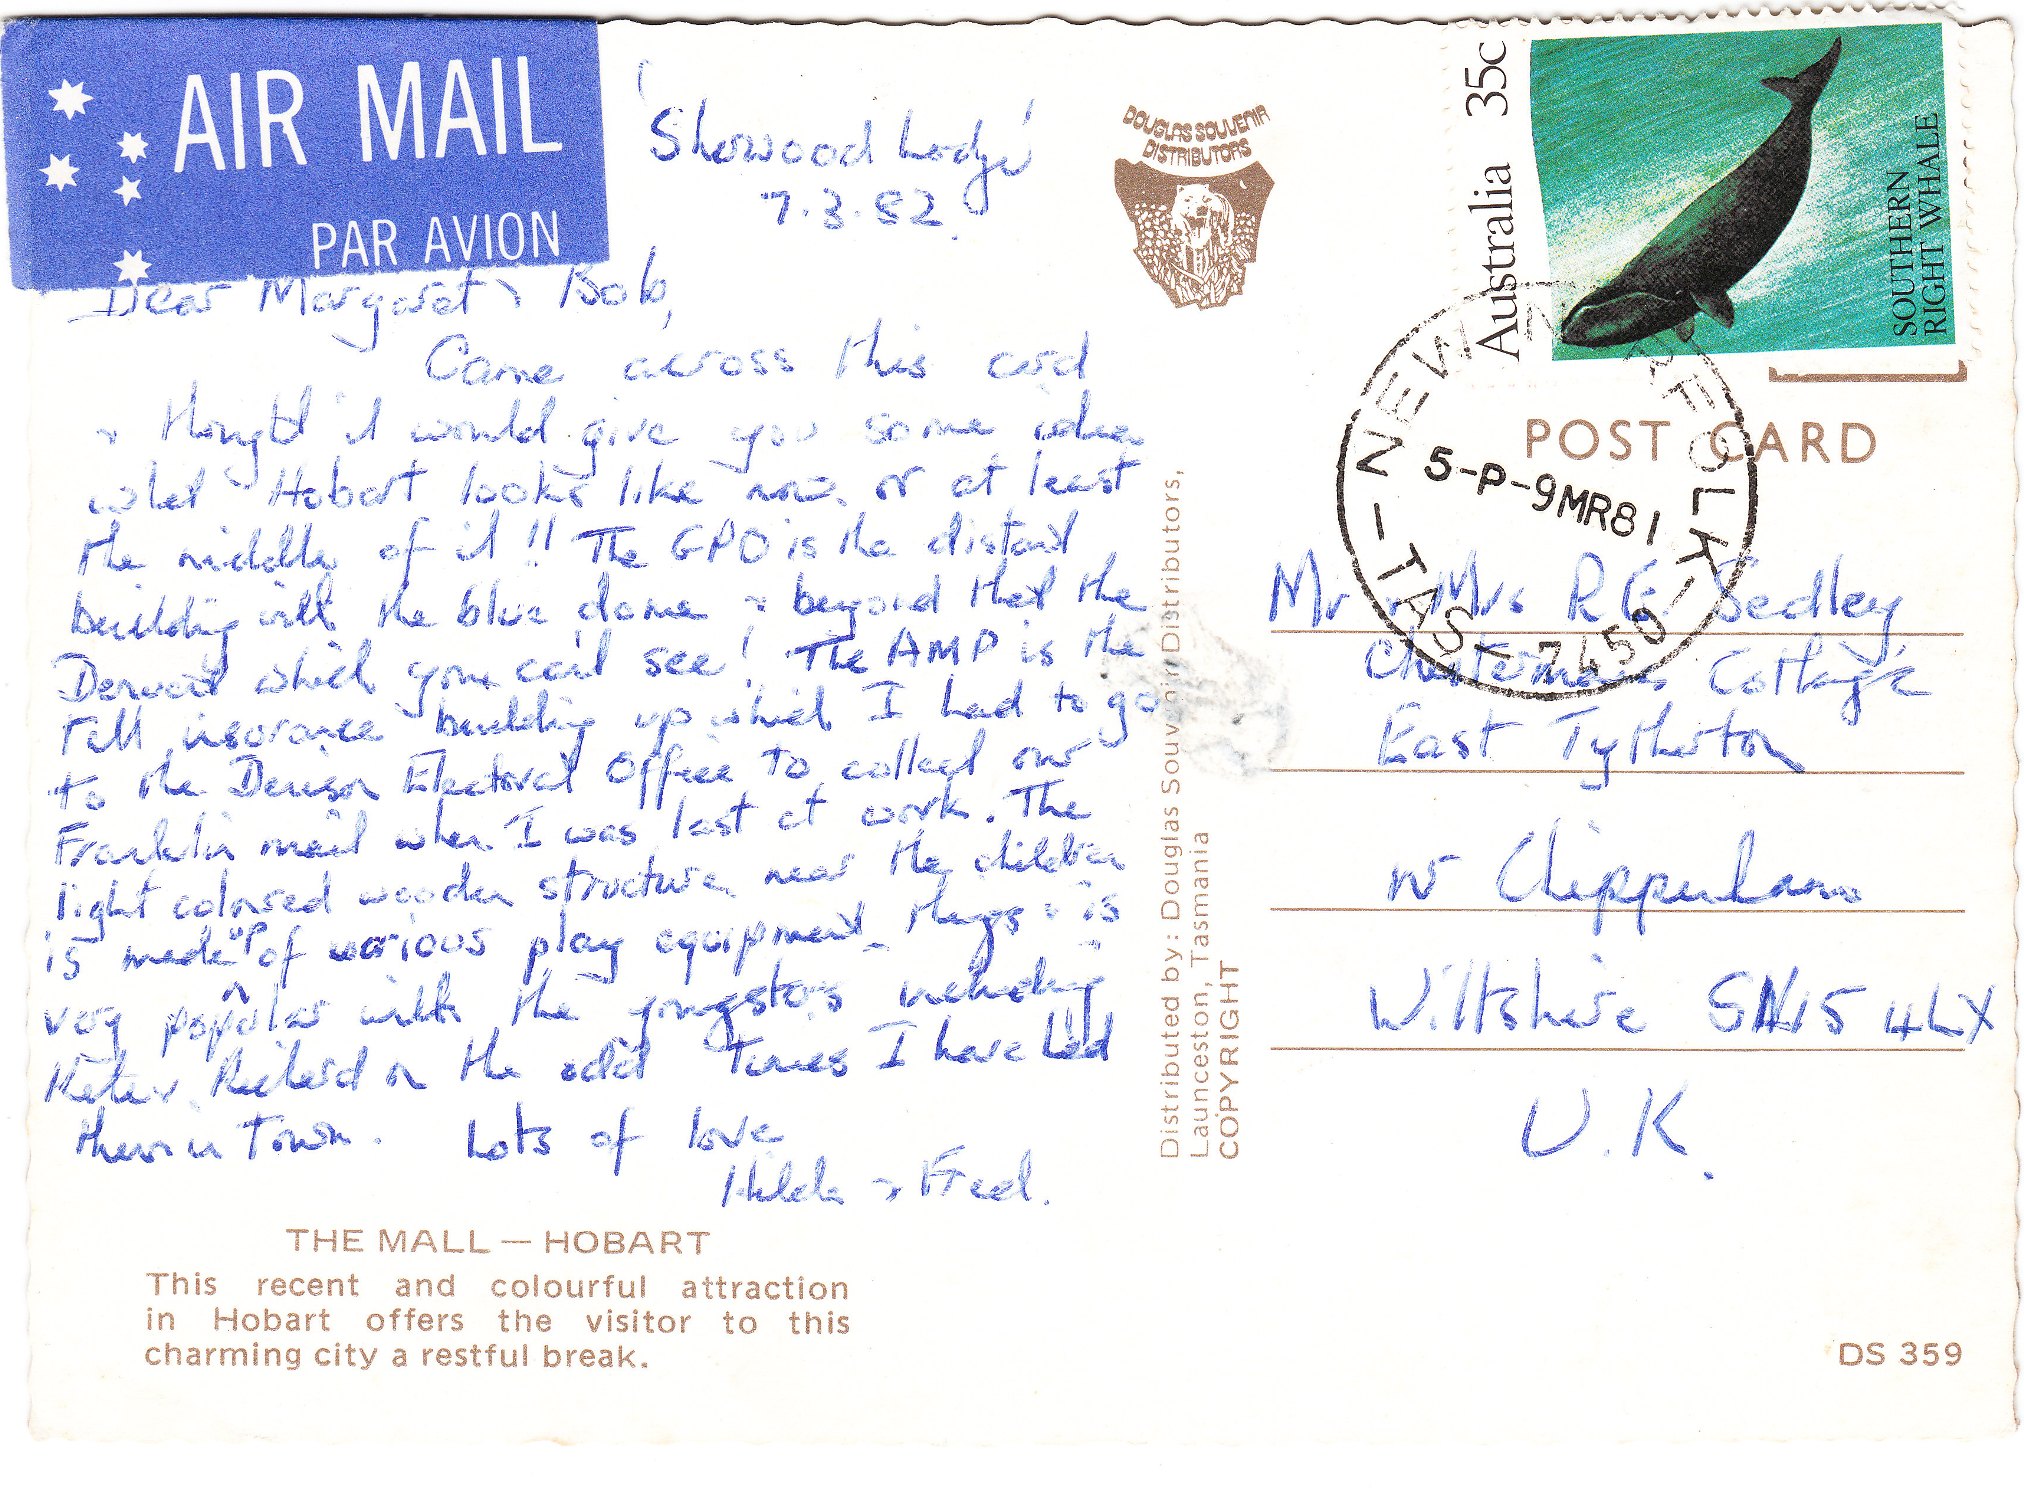 AIR MAIL
PAR AVION
'Sherwood Lodge'
7.3.82.
Dear Margaret & Bob,
Came across this card
& thought it would give you some idea
what Hobart looks like now, or at least
the middle of it!! The GPO is the distant
building with the blue dome & beyond that the
Derwent which you can't see! The AMP is the
tall insurance building up which I had to go
to the Denison Electoral Office to collect our
Franklin mail when I was last at work. The
light coloured wooden structure near the children
is made up of various play equipment things & is
very popular with the youngsters including
Peter & Richard on the odd times I have had
them in Town. Lots of love
Hilda & Fred.
THE MALL — HOBART
This recent and colourful attraction
in Hobart offers the visitor to this
charming city a restful break.
DOUGLAS SOUVENIR
DISTRIBUTORS
Distributed by: Douglas Souvenir Distributors,
Launceston, Tasmania
COPYRIGHT
Australia 35c
SOUTHERN
RIGHT WHALE
NEW NORFOLK
5-P-9MR81
TAS-7450
POST CARD
Mr & Mrs R E Sedley,
Cottage
East Tytherton
nr Chippenham
Wiltshire SN15 4LX
U.K.
DS 359